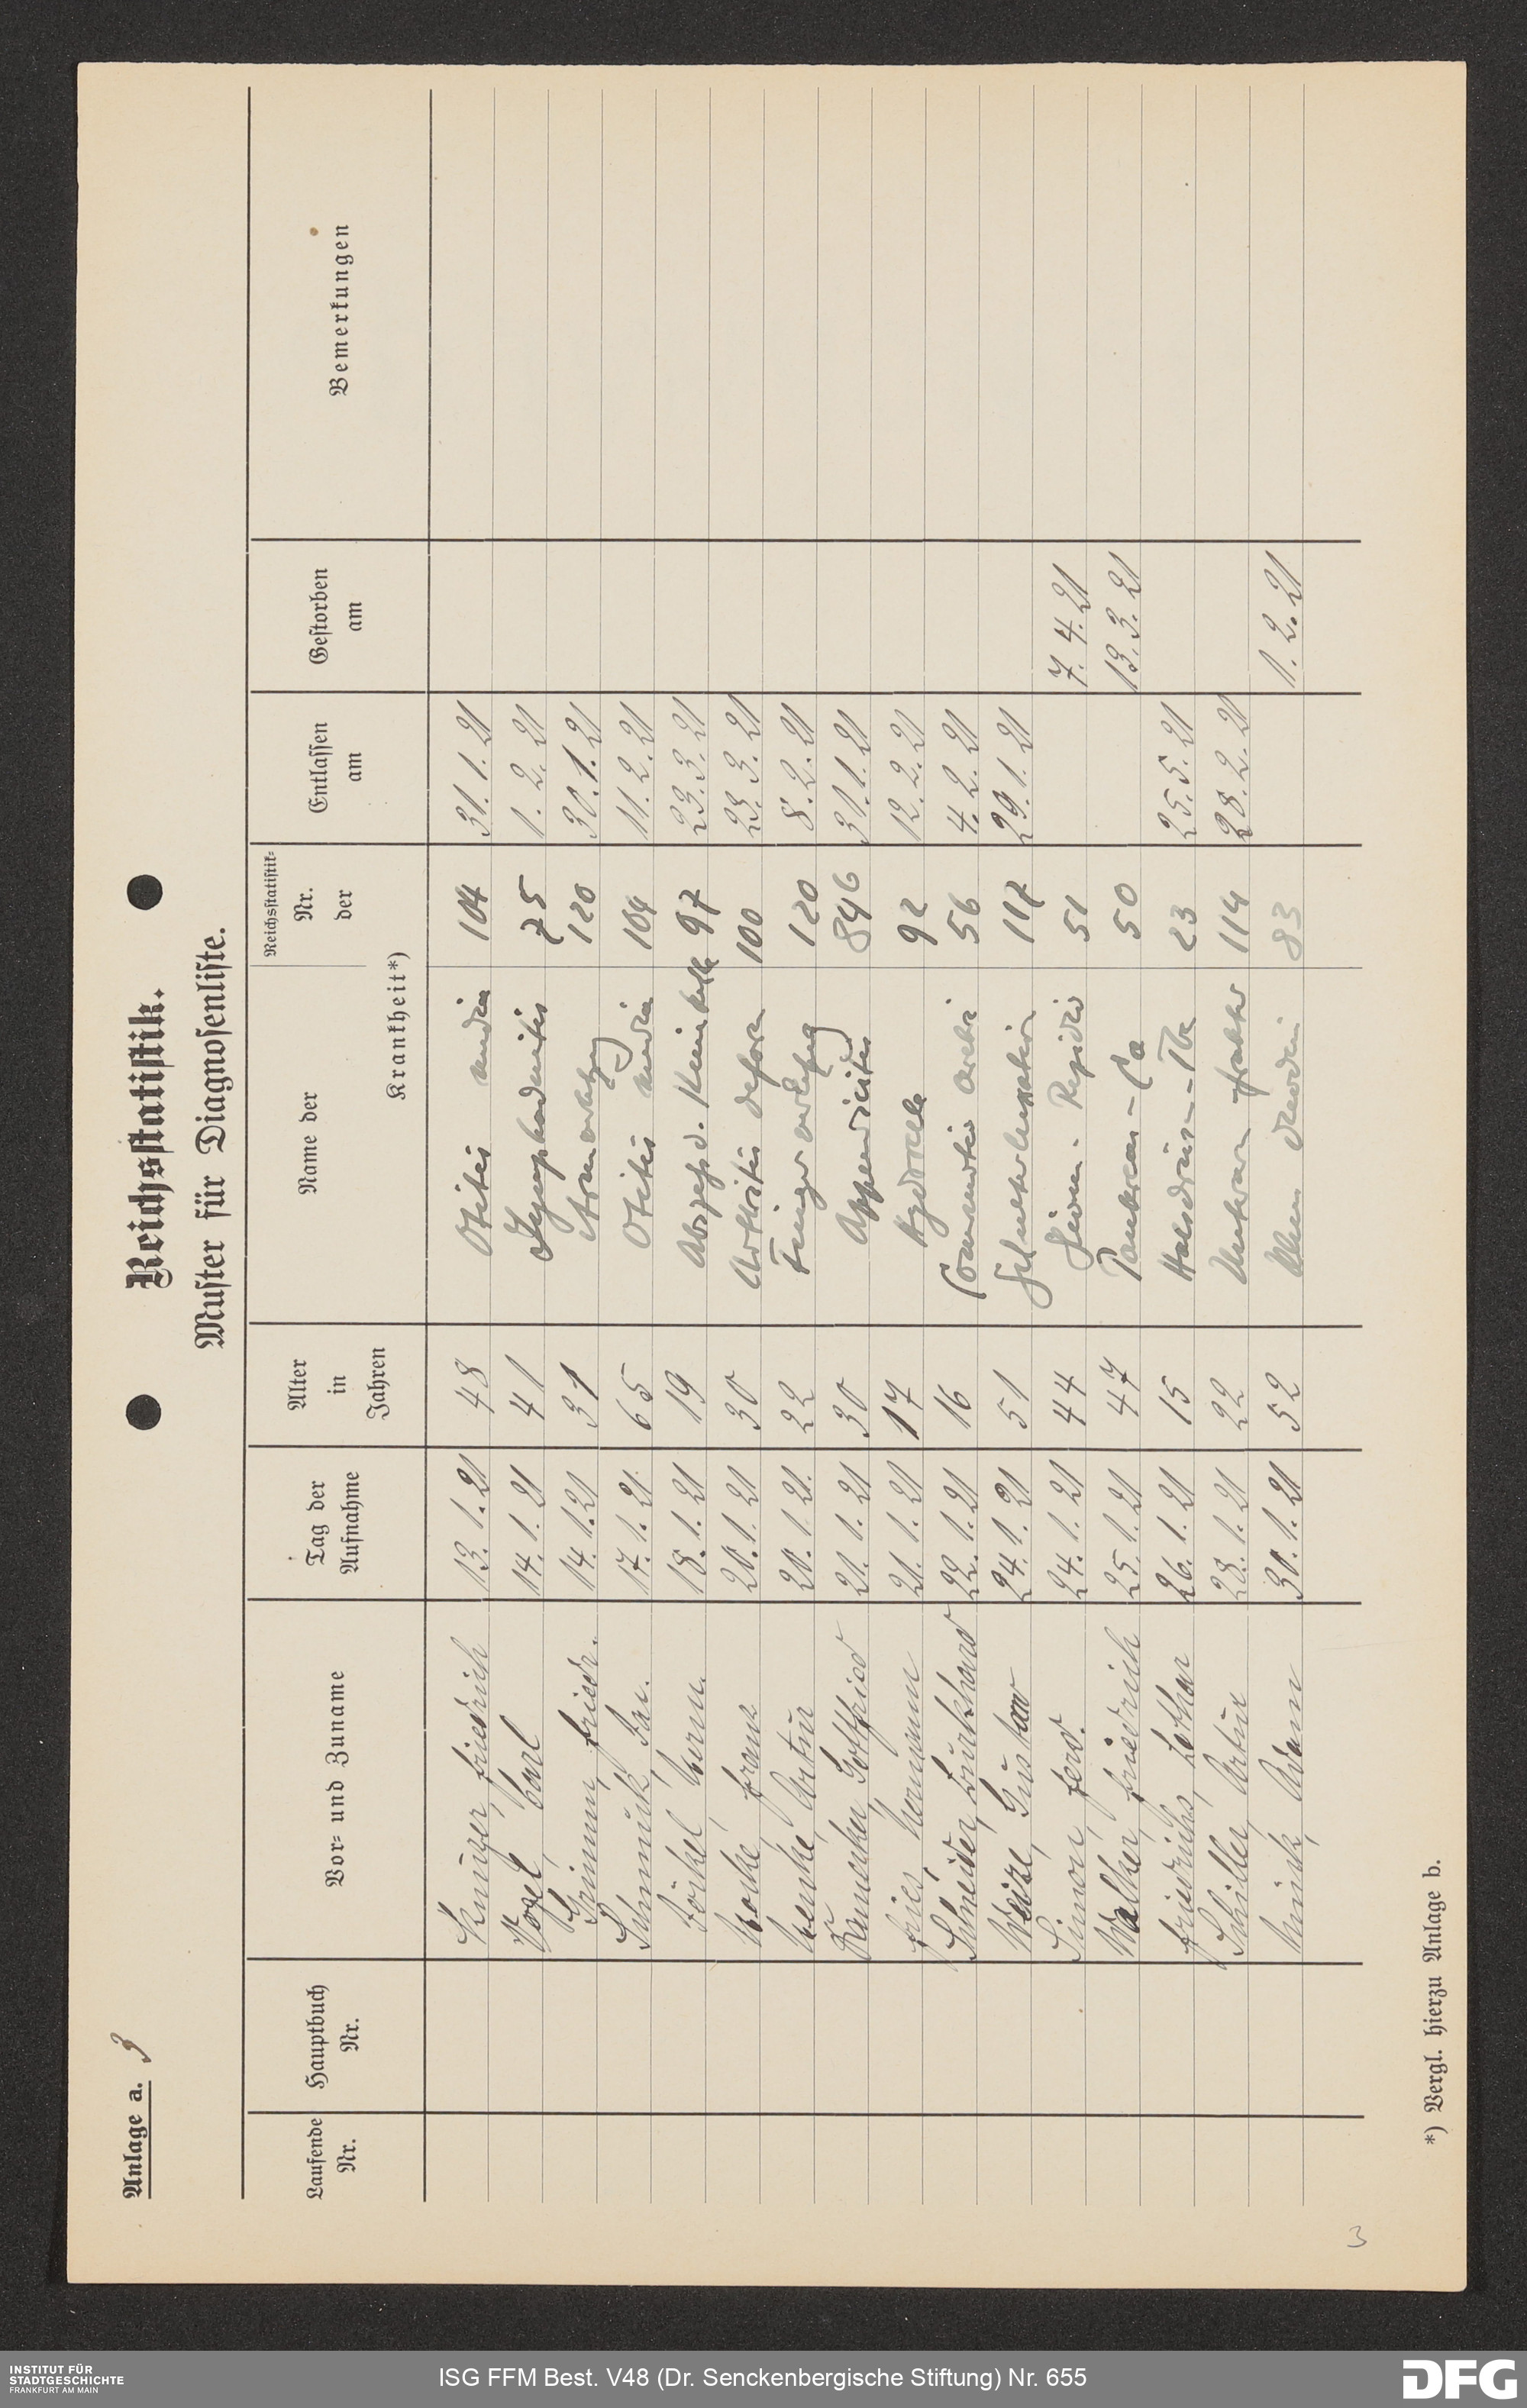 Anlage a. 3
Reichsstatistik.
Muster für Diagnosenliste.
Laufende Nr. Hauptbuch Nr. Vor- und Zuname Tag der Aufnahme Alter in Jahren Name der Reichsstatistik-Nr. der Krankheit*) Entlassen am Gestorben am Bemerkungen
Krüger, Friedrich 13. 1. 21 48 Otitis media 104 31. 1. 21
Vogel, Carl 14. 1. 21 41 Lymphadenitis 75 1. 2. 21
Grimm, Friedr. 14. 1. 21 31 120 30. 1. 21
17. 1. 21. 65 Otitis media 104 11. 2. 21
Herm. 18. 1. 21 19 Abszess d. 97 23. 3. 21
Franz 20. 1. 21 30 Arthritis deform 100 23. 3. 21
Artur 20. 1. 21. 22 Finger 120 8. 2. 21
Gottfried 21. 1. 21 30 Appendicitis 84b 31. 1. 21
Fries, Hermann 21. 1. 21 17 Hydrocele 92 12. 2. 21
Schneider, Burkhard 22. 1. 21 16 Commotio cerebri 56 4. 2. 21
Weize, Gustav 24. 1. 21 51 Schulterluxation 117 29. 1. 21
Simon, Ferd. 24. 1. 21 44 51 7. 4. 21
Walther, Friedrich 25. 1. 21 47 Pankreas-Ca 50 13. 3. 21
Friedrichs, Lothar 26. 1. 21 15 Halsdrüsen-Tbc 23 25. 5. 21
Schiller, Artur 28. 1. 21 22 114 28. 2. 21
Adam 30. 1. 21 52 Ulcus duodeni 83 1. 2. 21
*) Vergl. hierzu Anlage b.
3
INSTITUT FÜR
STADTGESCHICHTE
FRANKFURT AM MAIN
ISG FFM Best. V48 (Dr. Senckenbergische Stiftung) Nr. 655
DFG